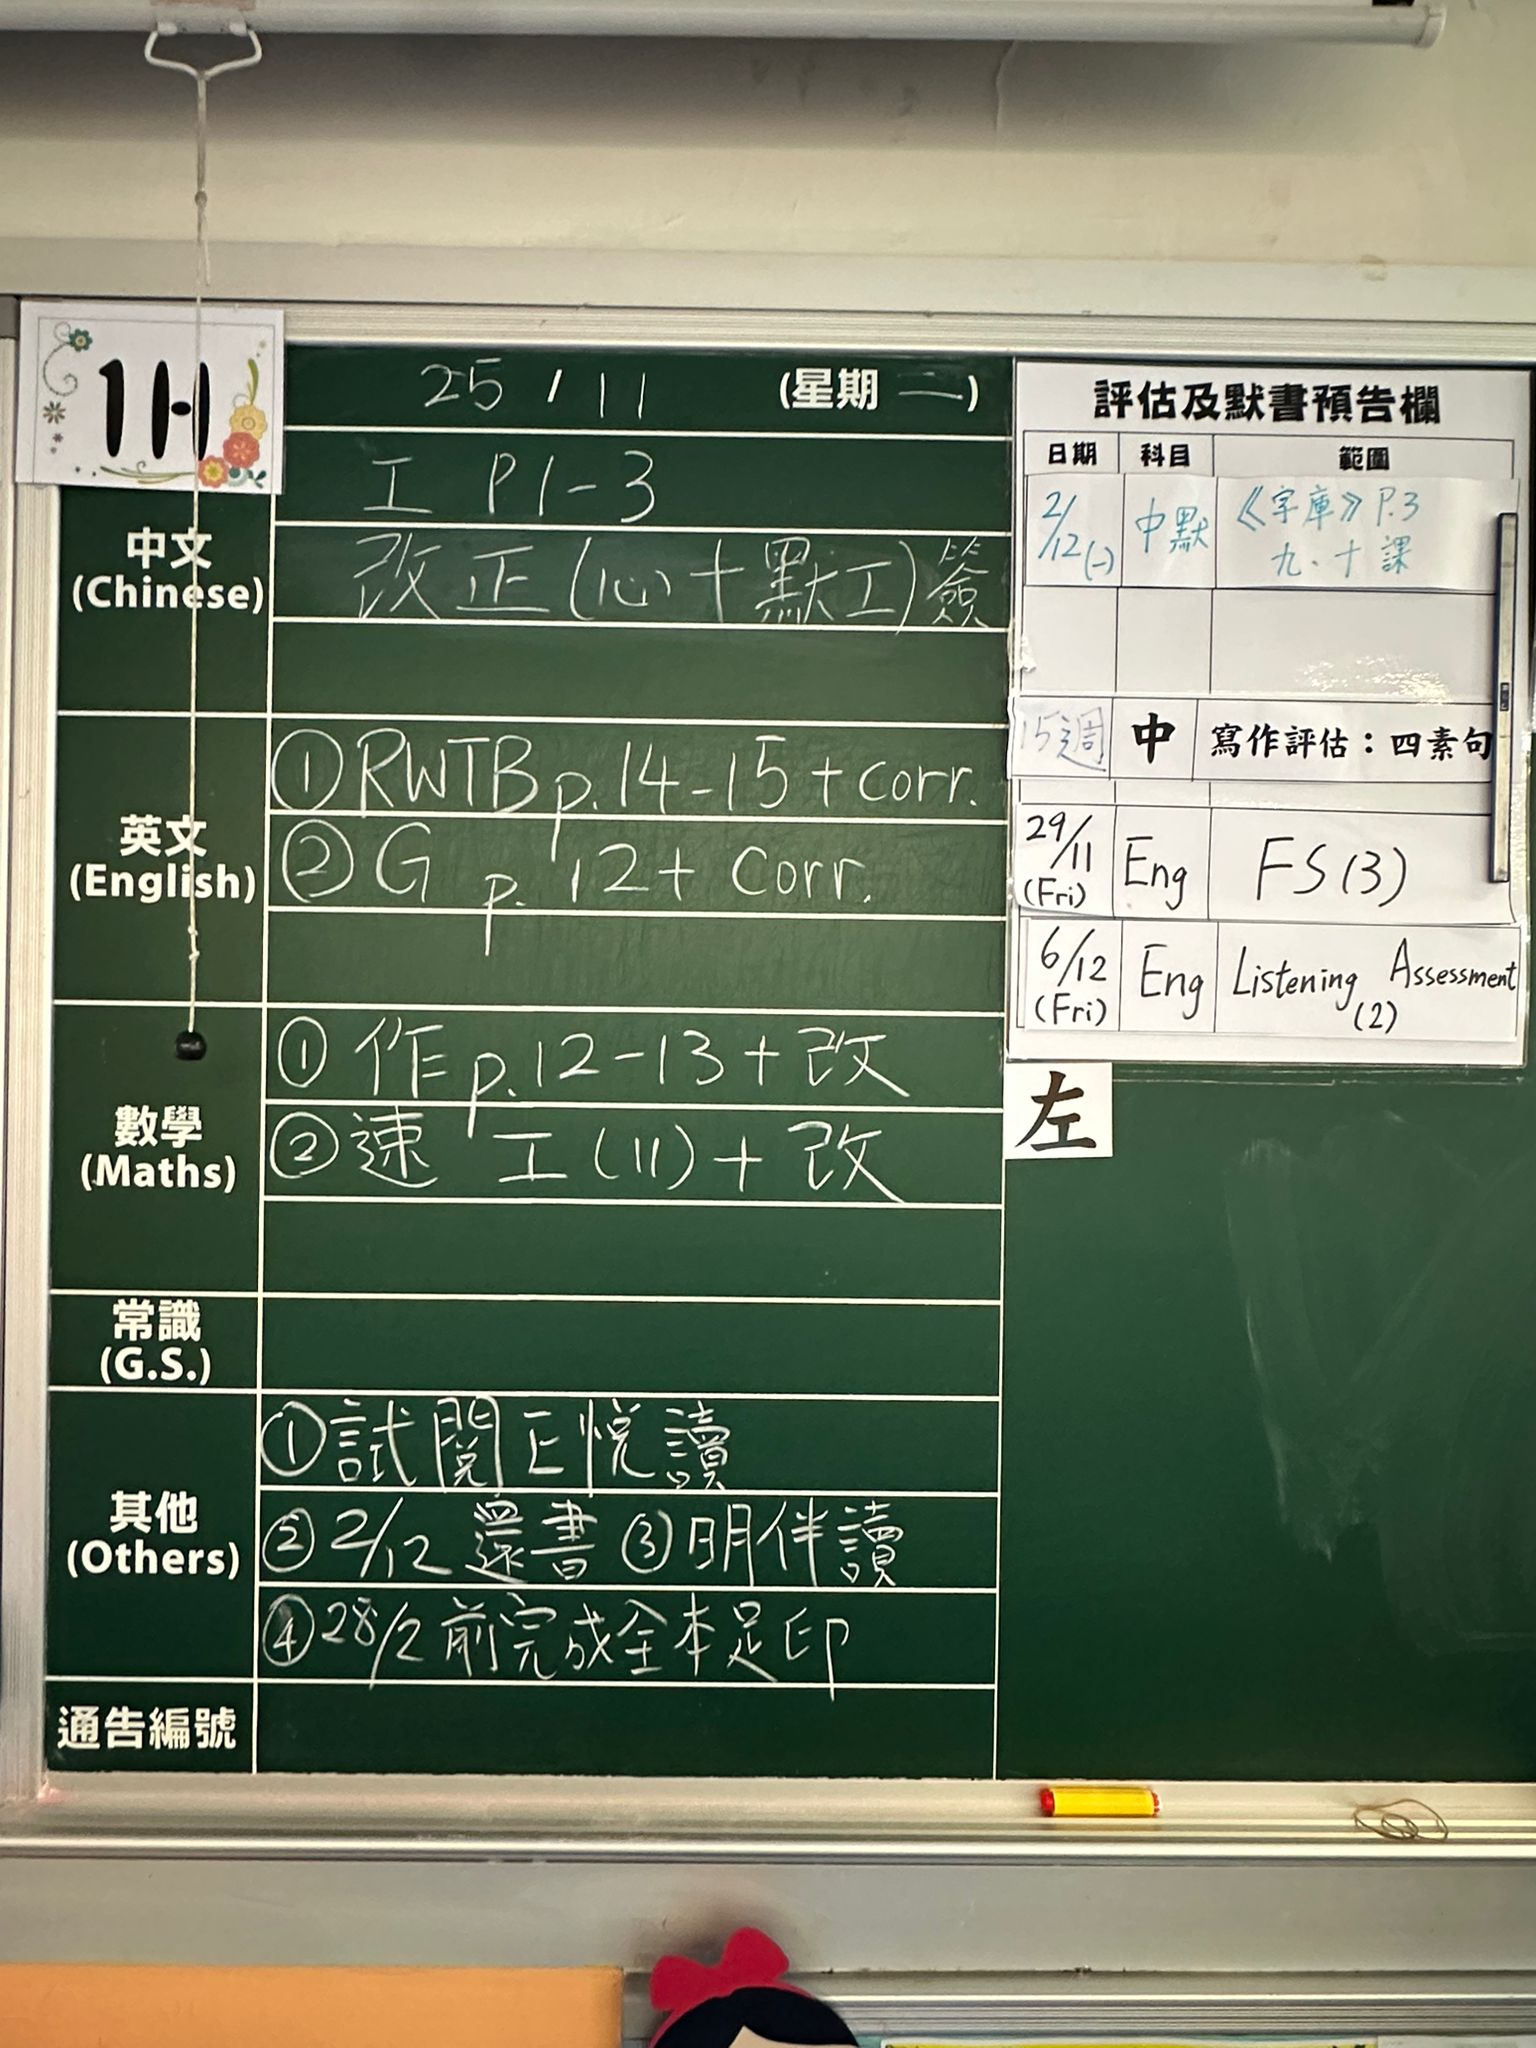 1H
25 / 11 (星期 一)
中文
(Chinese)
工 P1-3
改正(心+默工)簽
英文
(English)
①RWTB p.14-15+corr.
②G p. 12+ Corr.
數學
(Maths)
① 作 p.12-13+改
②速 工(11)+改
常識
(G.S.)
其他
(Others)
①試閱E悅讀
②2/12 還書 ③明伴讀
④28/2前完成全本足印
通告編號
評估及默書預告欄
日期 科目 範圍
2/12(一) 中默 《字庫》P.3
九、十課
15週 中 寫作評估:四素句
29/11 (Fri) Eng FS(3)
6/12 (Fri) Eng Listening Assessment
(2)
左